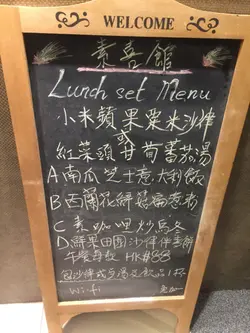 WELCOME
素喜館
Lunch set Menu
小米蘋果粟米沙律
或
紅菜頭甘荀蕃茄湯
A南瓜芝士意大利飯
B西蘭花鮮菇扁意粉
C素咖哩炒烏冬
D.鮮果田園沙律伴素餅
午餐每款 HK$88
包沙律或与湯及飲品1杯
Wi-fi